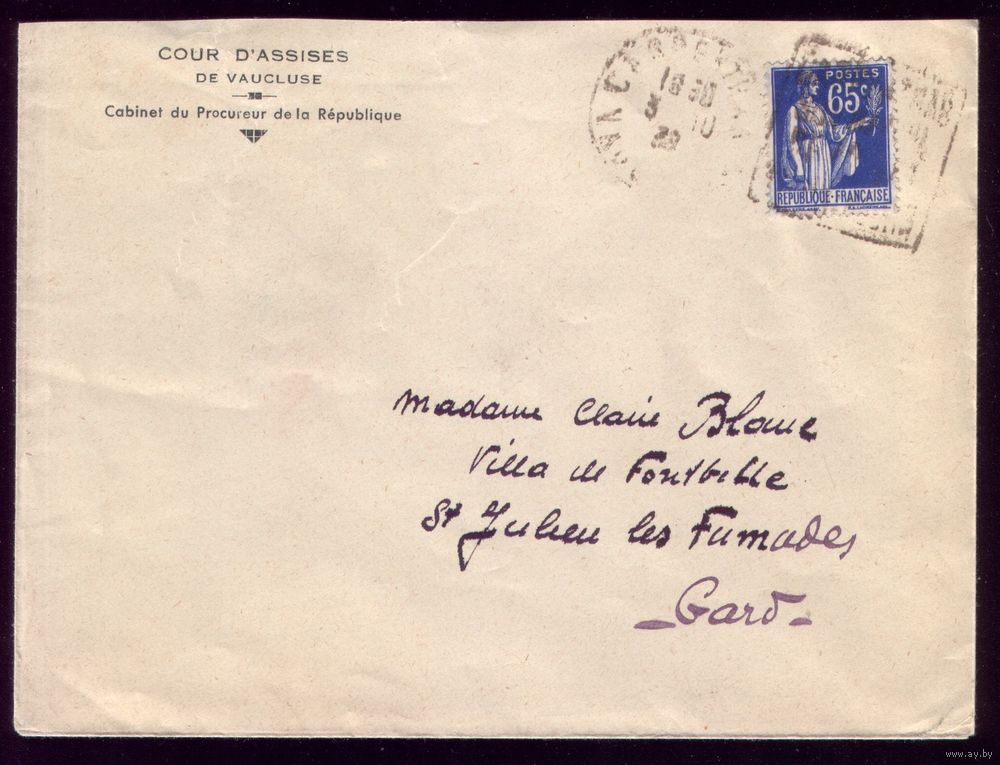 COUR D'ASSISES
DE VAUCLUSE
Cabinet du Procureur de la République
CARPENTRAS
POSTES
65c
RÉPUBLIQUE-FRANÇAISE
Madame Claire Blanc
Villa de Fontbelle
St Julien les Fumades
-Gard-
www.ay.by